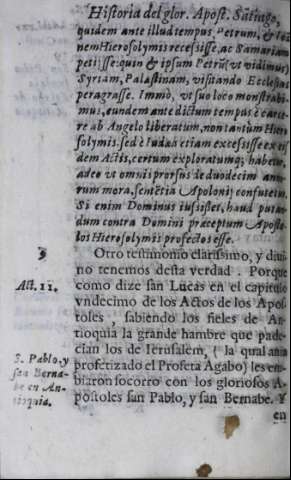 Historia del glor. Apost. Sātiago,
quidem ante illud tempus Petrum, & Ioā
nem Hierosolymis recessisse, ac Samariam
petijsse: quin & ipsum Petrū (vt vidimus)
Syriam, Palæstinam, visitando Ecclesias
peragrasse. Immò, vt suo loco monstrabi-
mus, eundem ante dictum tempus è carce-
re ab Angelo liberatum, non tantùm Hiero
solymis. sed è Iudæa etiam excessisse ex eis
dem Actis, certum exploratumq; habetur,
adeo vt omni prorsus de duodecim anno-
rum mora, sentētia Apolonij confutetur.
Si enim Dominus iussisset, haud putan-
dum contra Domini præceptum Aposto-
los Hierosolymis profectos esse.
9
Act. 11.
Otro testimonio clarissimo, y diui-
no tenemos desta verdad. Porque
como dize san Lucas en el capitulo
vndecimo de los Actos de los Apos-
toles, sabiendo los fieles de An-
tioquia la grande hambre que pade-
cian los de Ierusalem, (la qual auia
profetizado el Profeta Agabo) les en-
biaron socorro con los gloriosos A-
postoles san Pablo, y san Bernabe. Y
en
S. Pablo, y
san Berna-
be en An-
tioquia.